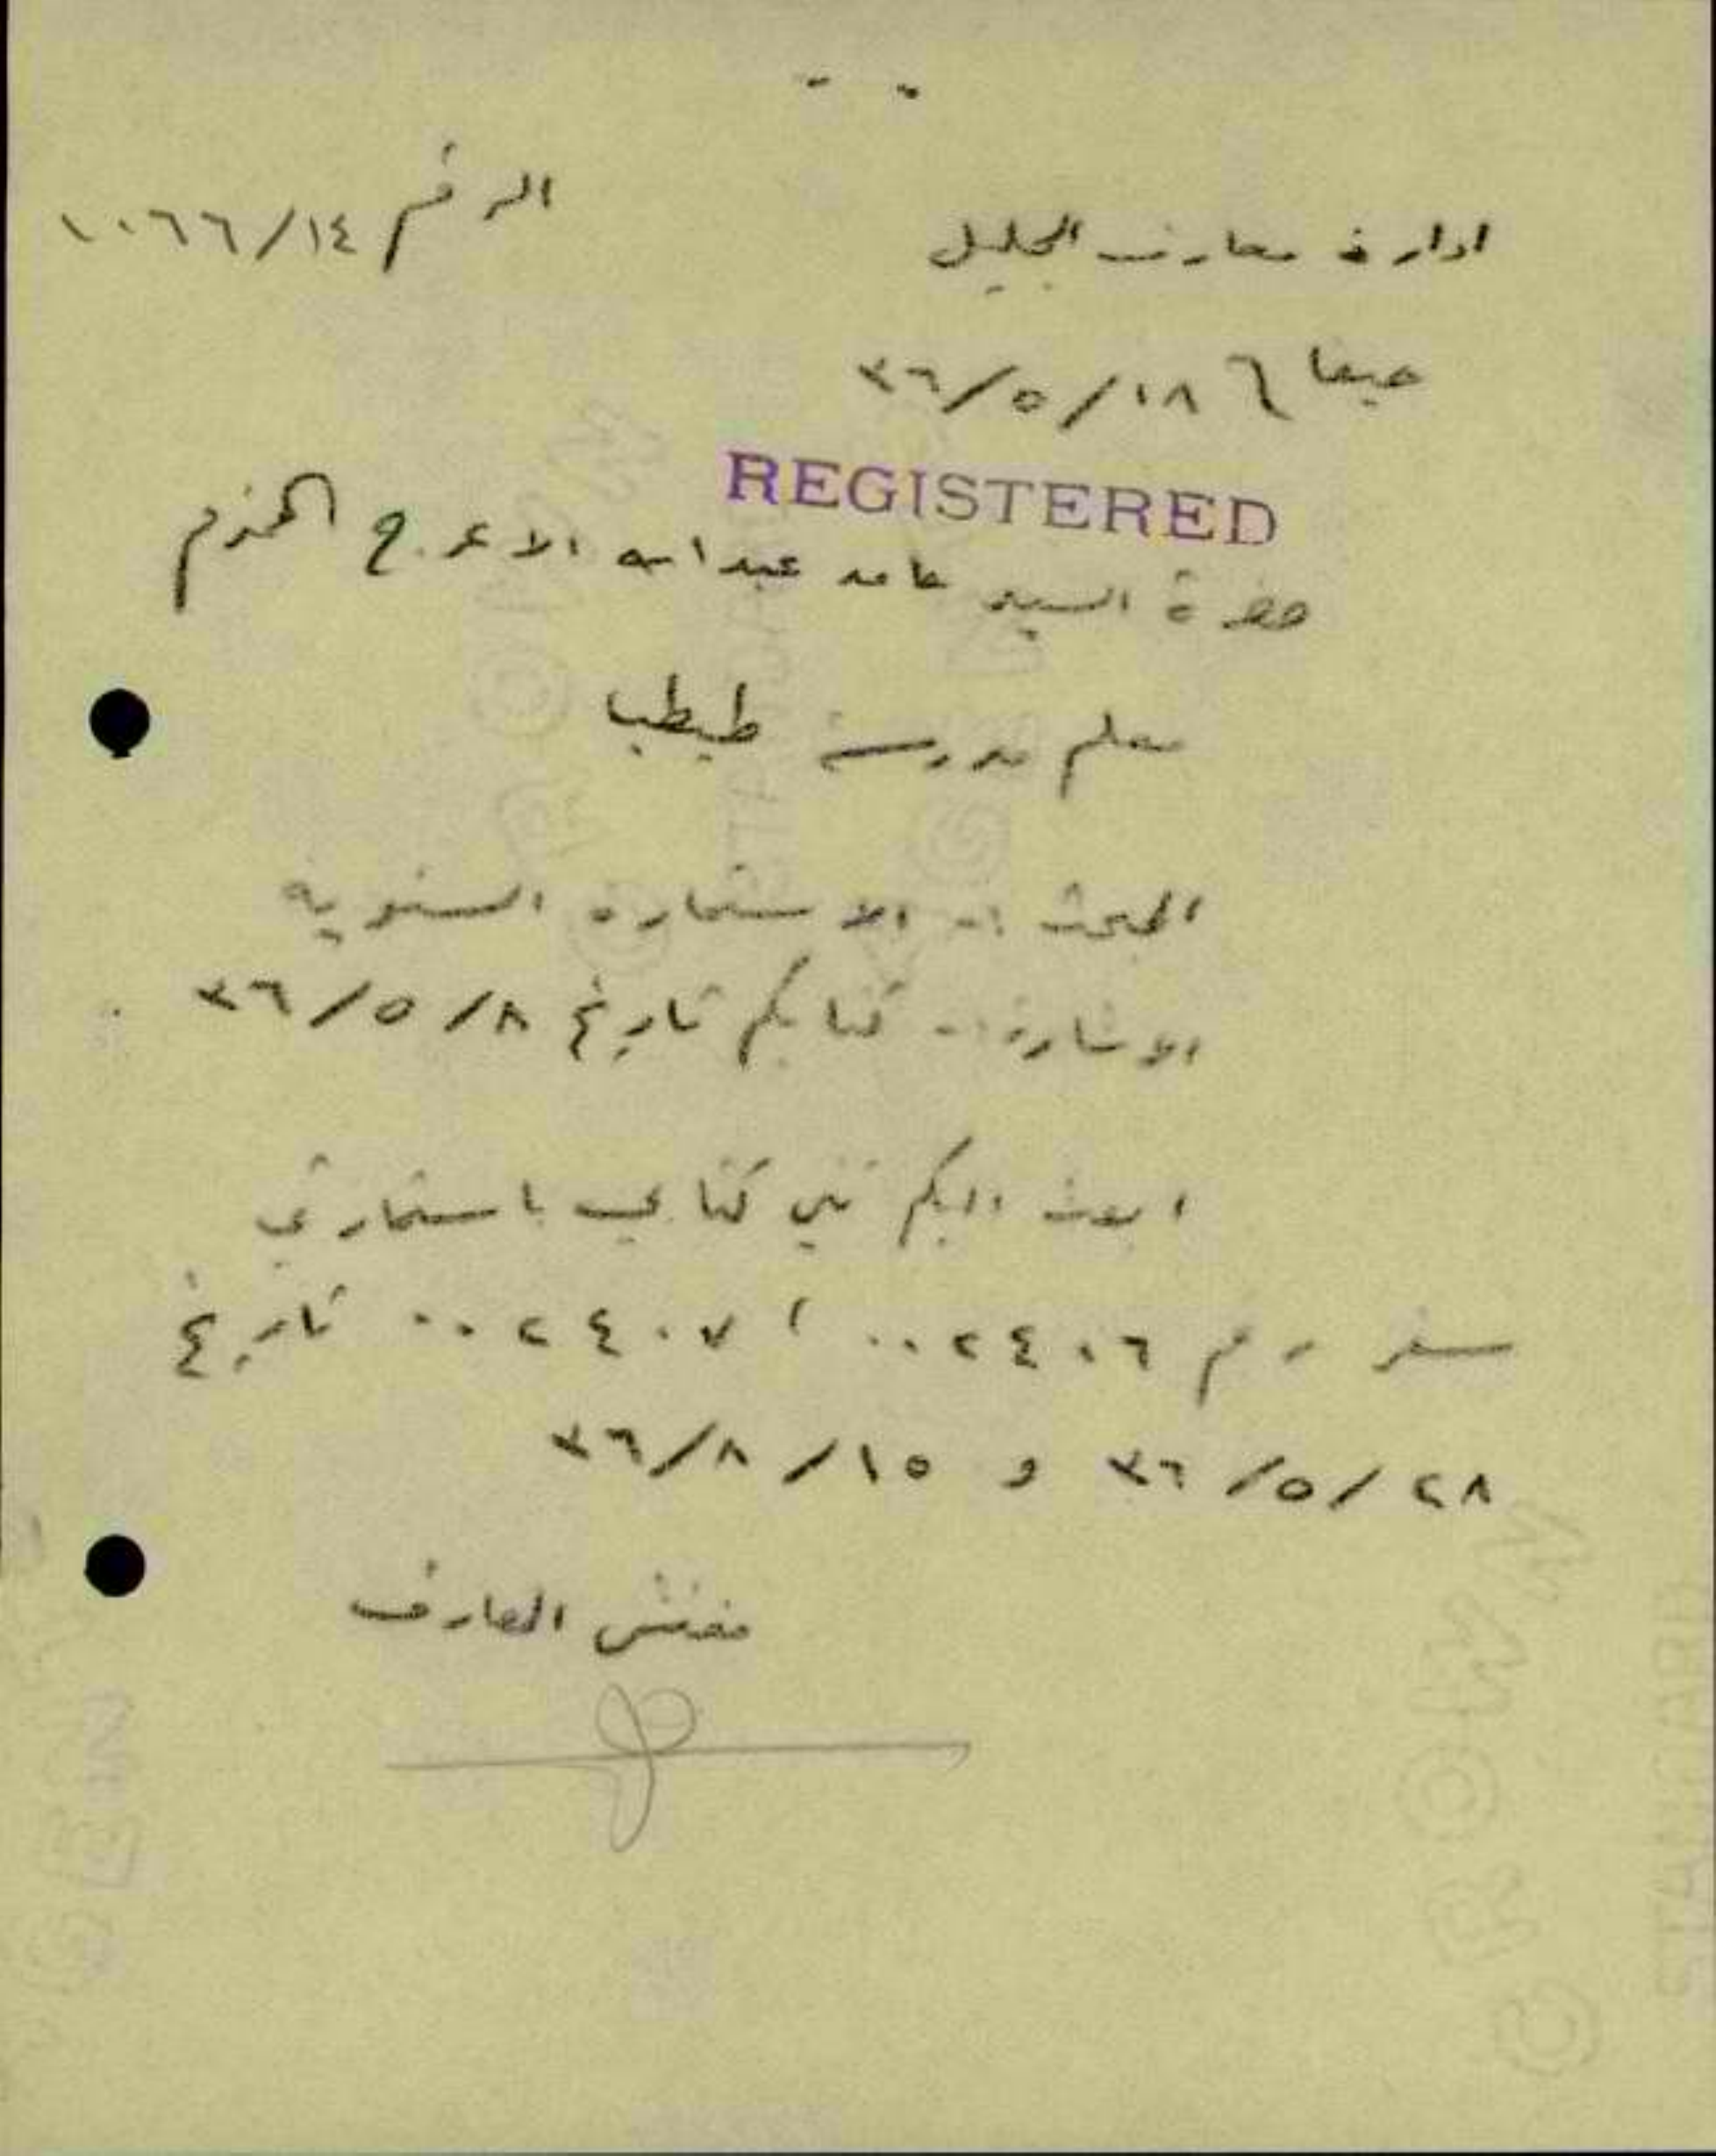 الرقم ١٠٦٦/١٤
ادارة معارف الجليل
حيفا ٦ ١٨/٥/٣٦
REGISTERED
حضرة السيد حامد عبد الله الاعرج المحترم
معلم مدرسة طيطبا
المبحث :- الاستمارة السنوية
الاشارة :- كتابكم تاريخ ٨/٥/٣٦
ابعث اليكم طي كتابي باستمارتي
سفر رقم ٠٠٢٤٠٦ ، ٠٠٢٤٠٧ تاريخ
٢٨/٥/٣٦ و ١٥/٨/٣٦
مفتش المعارف